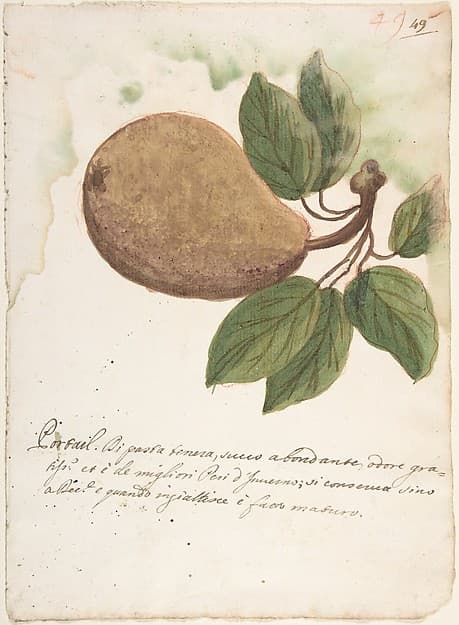 49 49
Portail. Di pasta tenera, succo abondante, odore gra=
tiss.º et è de migliori Peri d'Inverno; si conserva sino
a Dec.e e quando ingiallisce è fatto maturo.